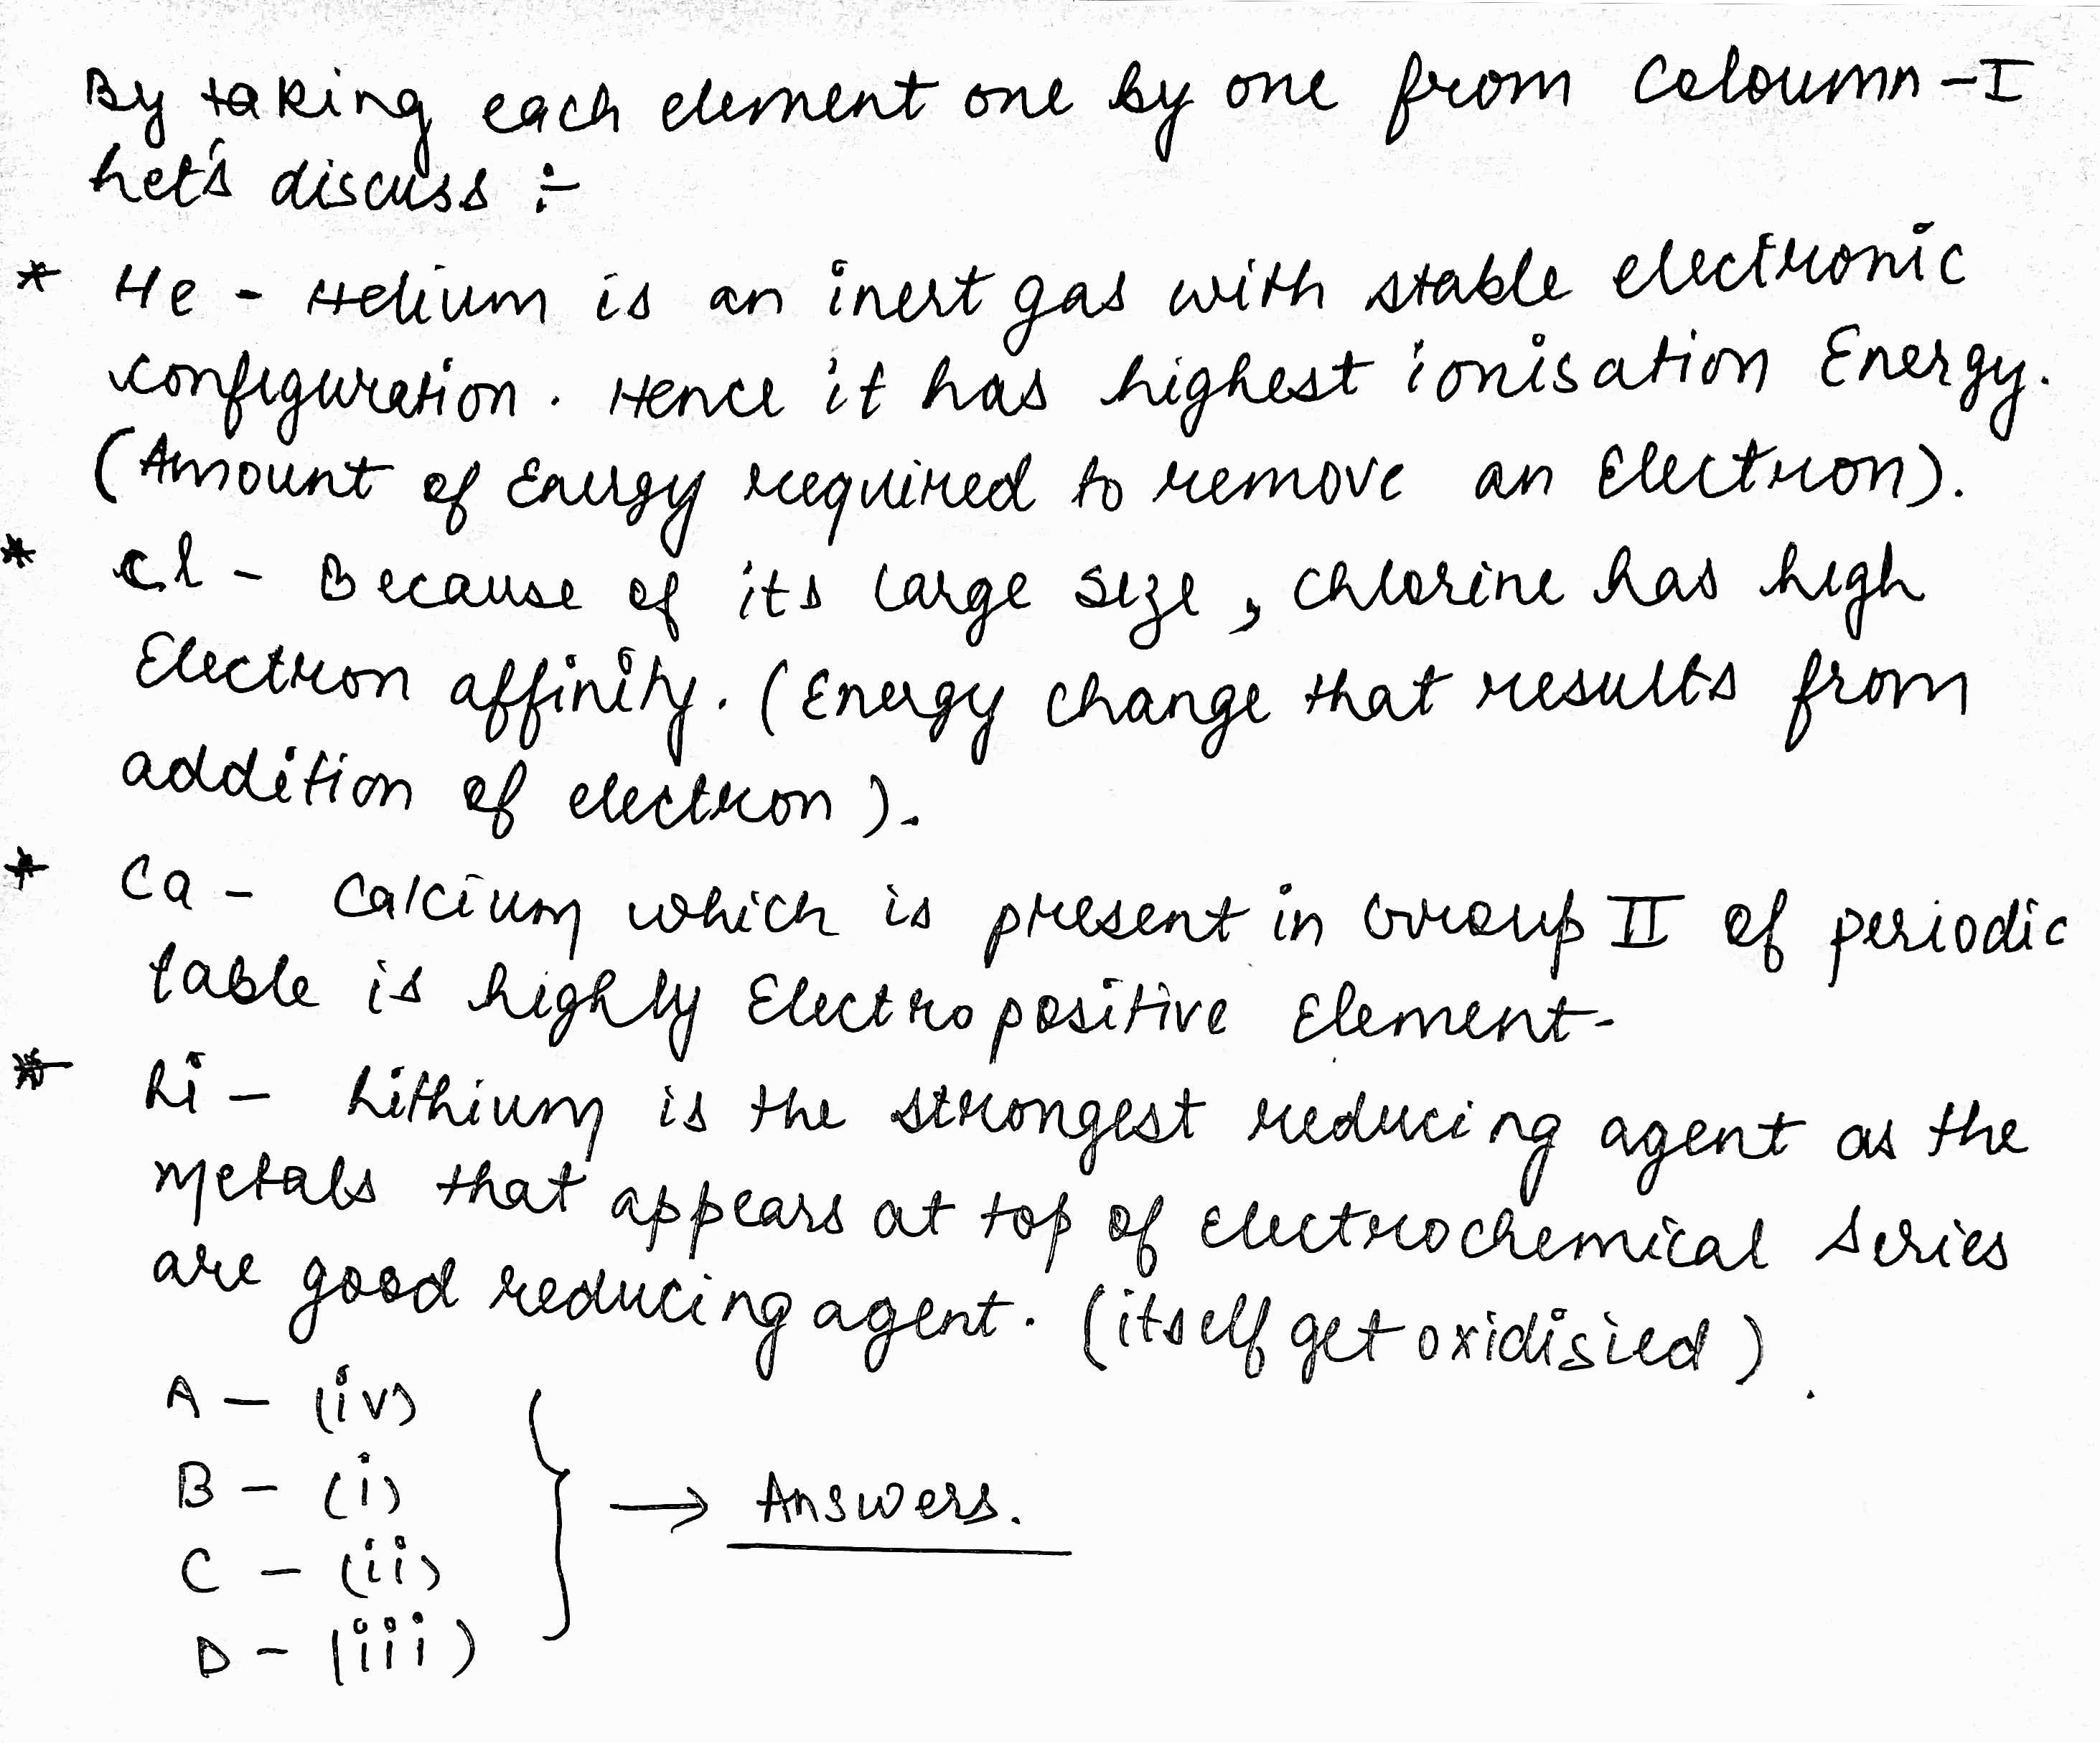 By taking each element one by one from Coloumn-I
Let's discuss :-
* He - Helium is an inert gas with stable electronic
configuration. Hence it has highest ionisation Energy.
(Amount of Energy required to remove an Electron).
* Cl - Because of its large size, chlorine has high
Electron affinity. (Energy change that results from
addition of electron).
* Ca - Calcium which is present in Group II of periodic
table is highly Electropositive Element-
* Li - Lithium is the strongest reducing agent as the
metals that appears at top of electrochemical series
are good reducing agent. (itself get oxidisied).
A - (iv)
B - (i)
C - (ii)
D - (iii)
→ Answers.